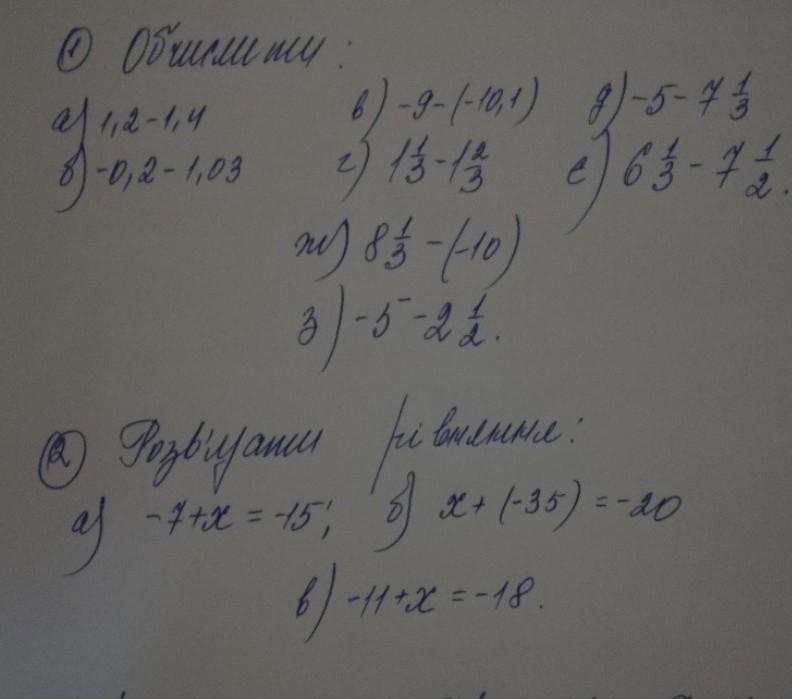 ① Обчислити:
а) 1,2-1,4 в) -9-(-10,1) д) -5-7 1/3
б) -0,2-1,03 г) 1 1/3-1 2/3 е) 6 1/3-7 1/2.
ж) 8 1/3-(-10)
з) -5-2 1/2.
② Розв'язати рівняння:
а) -7+х=-15; б) х+(-35)=-20
в) -11+х=-18.